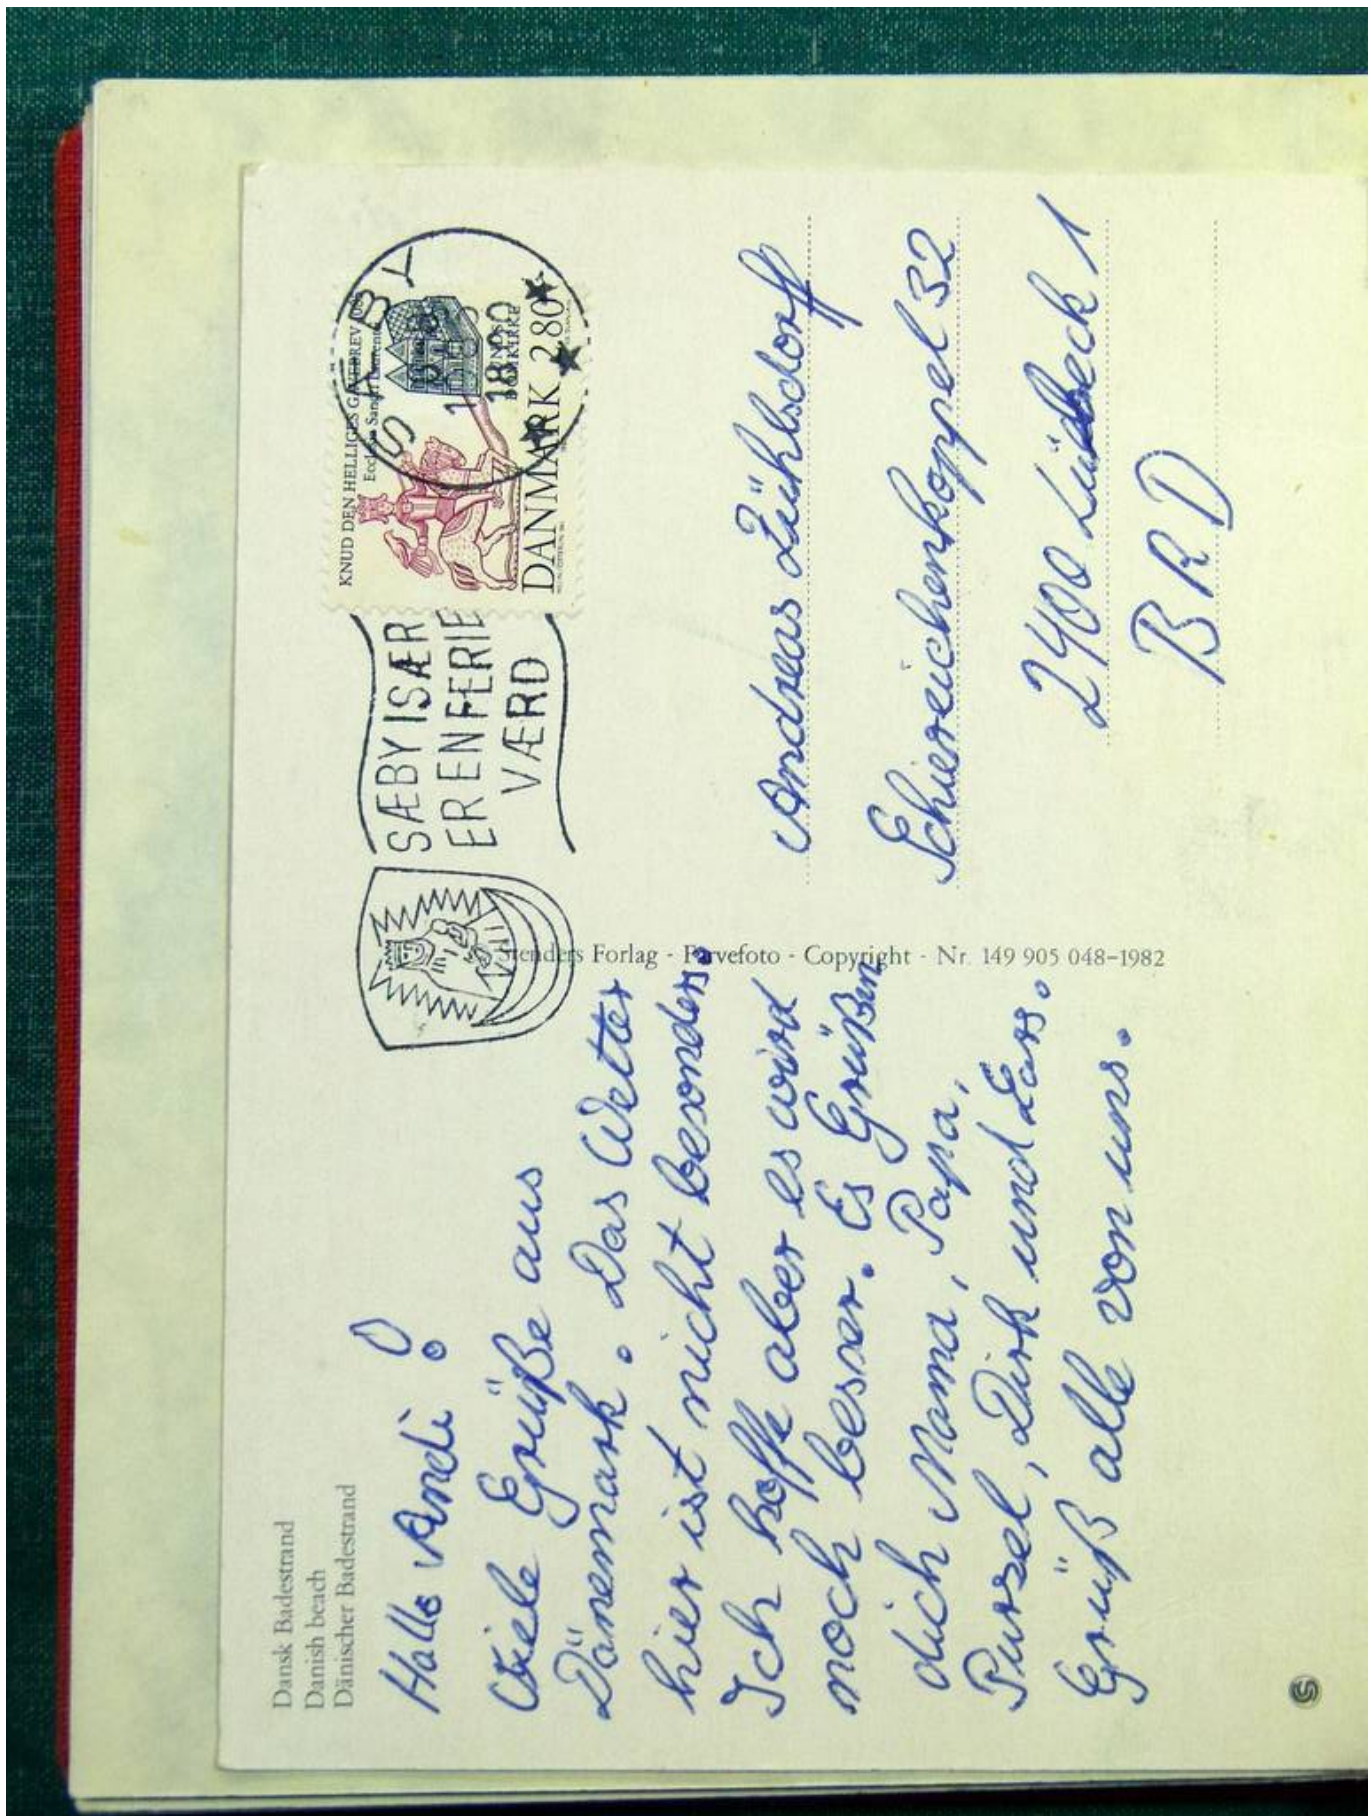 Dansk Badestrand
Danish beach
Dänischer Badestrand
Hallo Andi!
Viele Grüße aus
Dänemark. Das Wetter
hier ist nicht besonders.
Ich hoffe aber es wird
noch besser. Es Grüßen
dich Mama, Papa,
Purzel, Dirk und Lars.
Grüß alle von uns.
Stenders Forlag - Farvefoto - Copyright - Nr. 149 905 048-1982
SÆBY ISÆR
ER EN FERIE
VÆRD
KNUD DEN HELLIGES GAVEBREV
DANMARK 280
SÆBY
Andreas Zühlsdorff
Schiereichenkoppel 32
2400 Lübeck 1
BRD